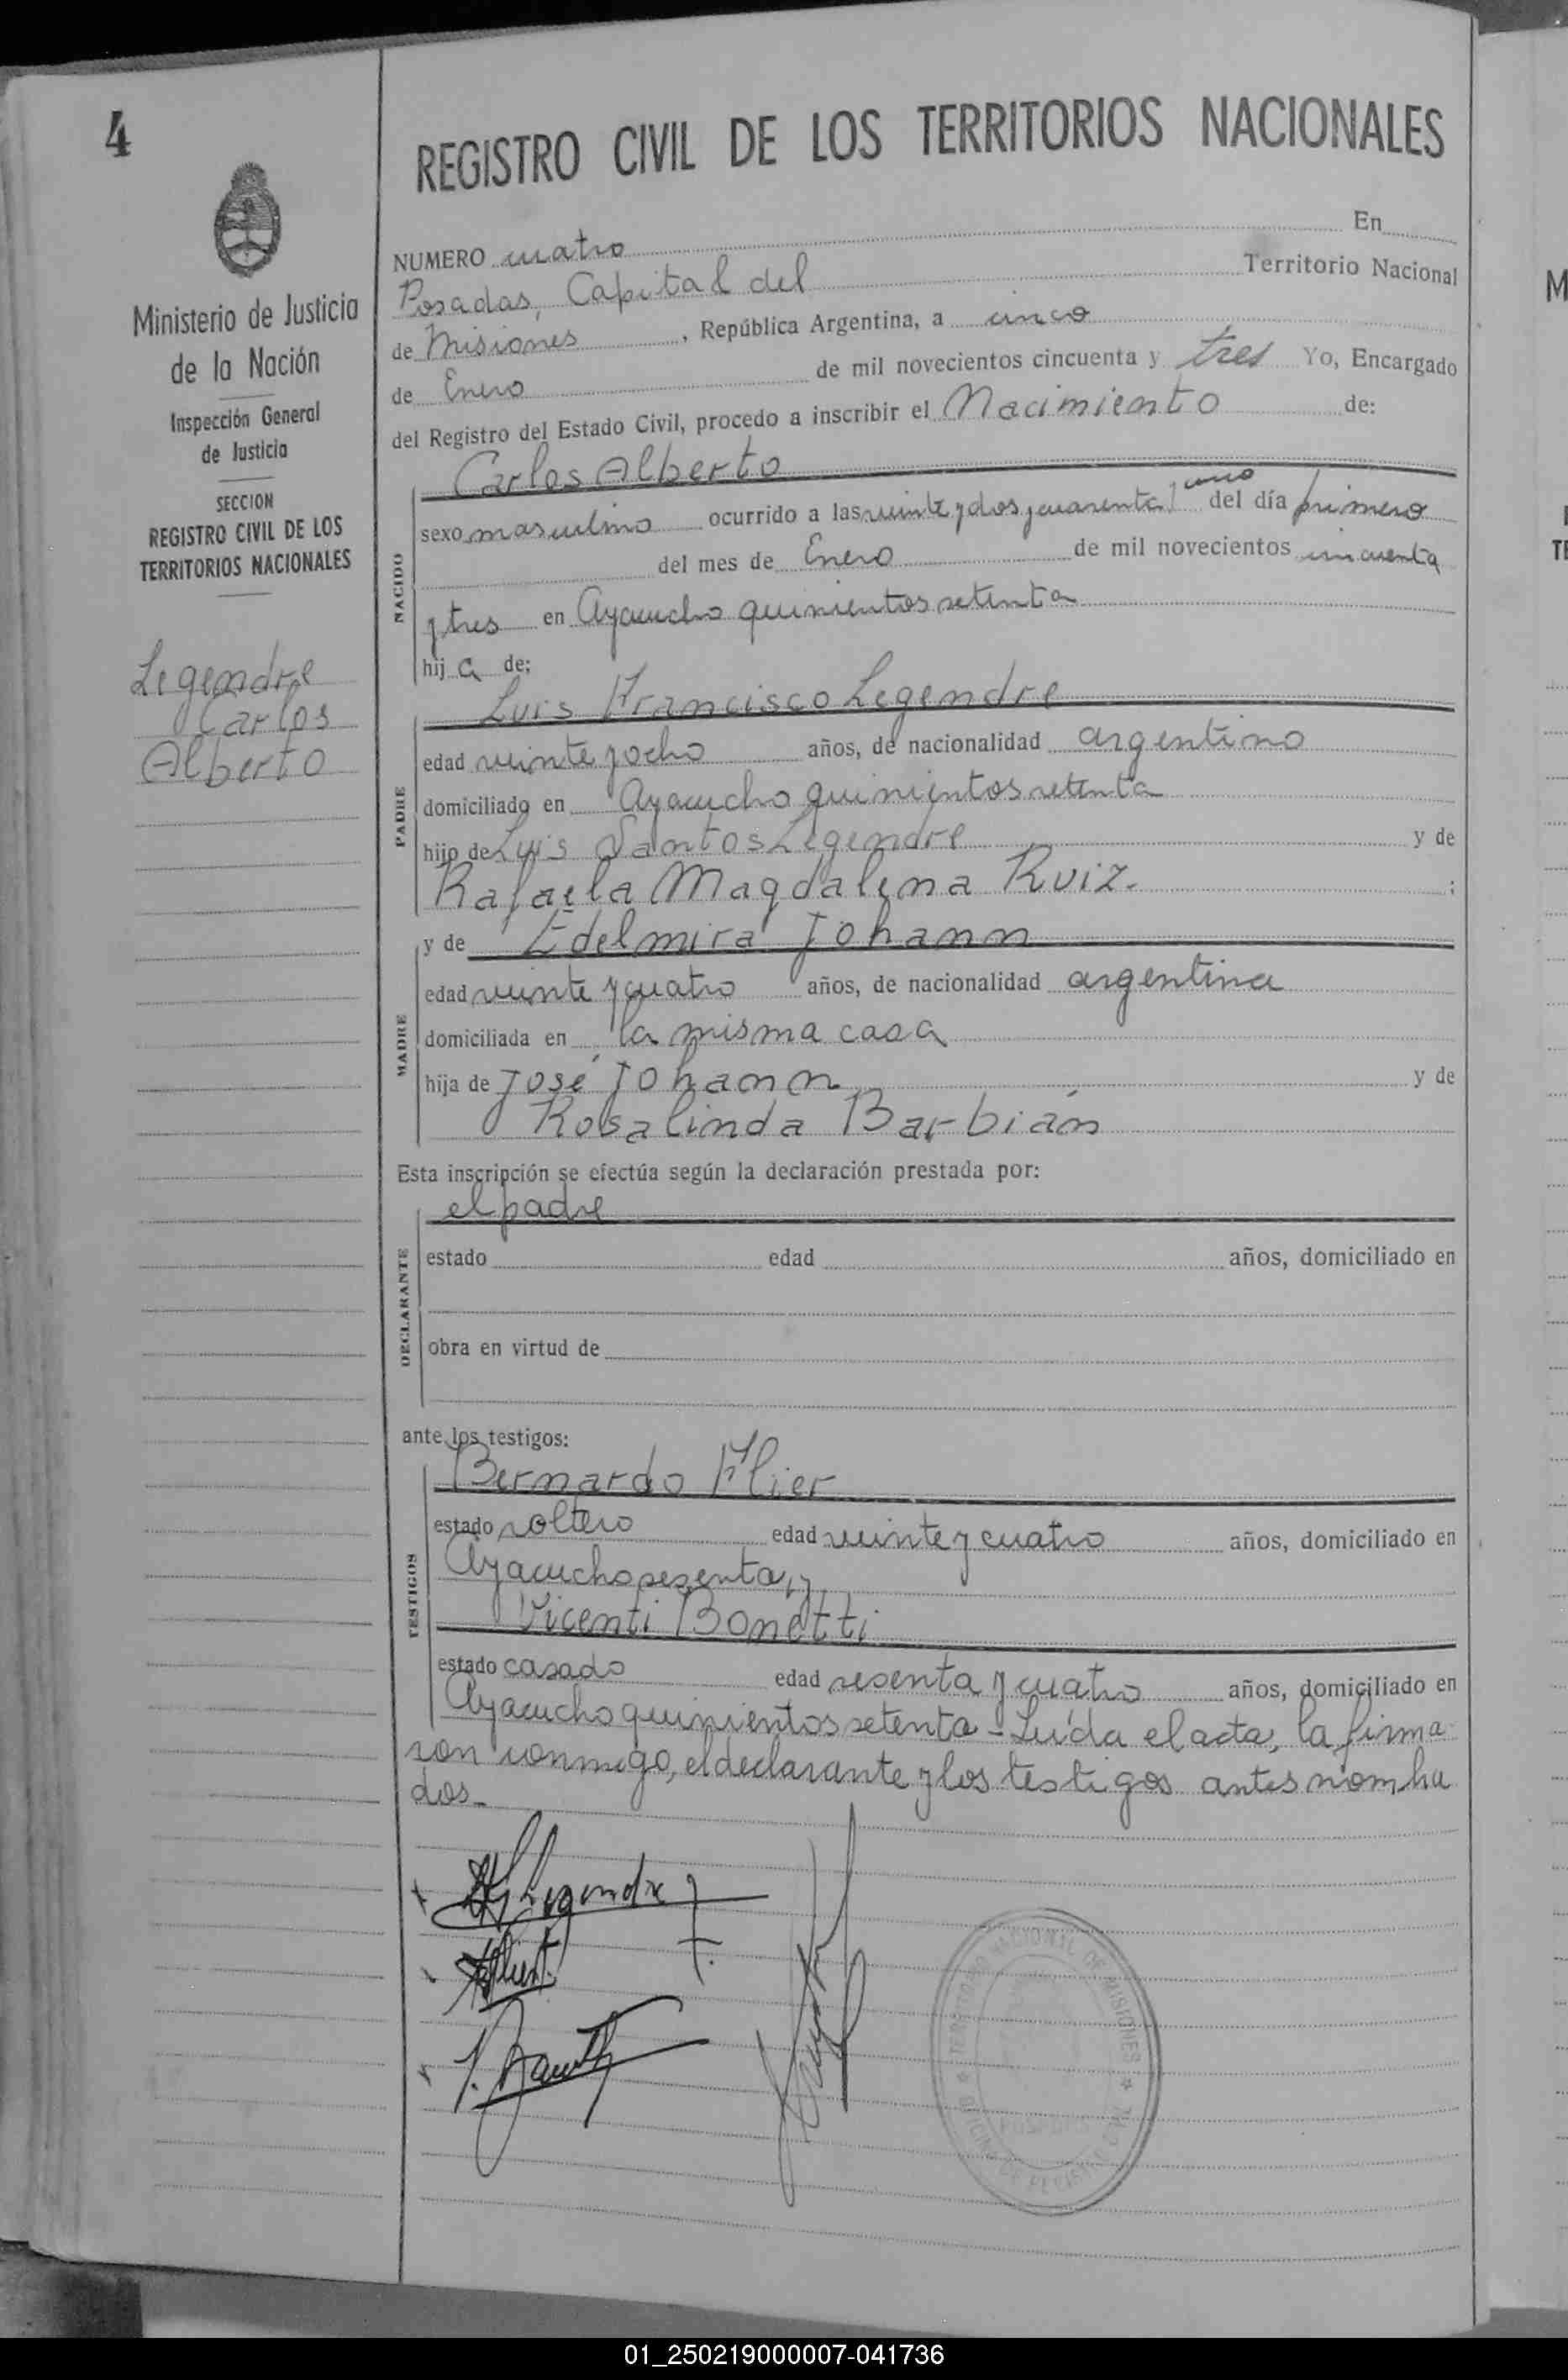 4
Ministerio de Justicia
de la Nación
Inspección General
de Justicia
SECCION
REGISTRO CIVIL DE LOS
TERRITORIOS NACIONALES
Legendre
Carlos
Alberto
REGISTRO CIVIL DE LOS TERRITORIOS NACIONALES
NUMERO cuatro En
Posadas, Capital del Territorio Nacional
de Misiones, República Argentina, a cinco
de Enero de mil novecientos cincuenta y tres Yo, Encargado
del Registro del Estado Civil, procedo a inscribir el Nacimiento de:
Carlos Alberto
NACIDO
sexo masculino ocurrido a las veinte y dos y cuarenta y cinco del día primero
del mes de Enero de mil novecientos cincuenta
y tres en Ayacucho quinientos setenta
hij a de:
Luis Francisco Legendre
PADRE
edad veinte y ocho años, de nacionalidad argentino
domiciliado en Ayacucho quinientos setenta
hijo de Luis Santos Legendre y de
Rafaela Magdalena Ruiz. ;
y de Edelmira Johann
MADRE
edad veinte y cuatro años, de nacionalidad argentina
domiciliada en la misma casa
hija de José Johann y de
Rosalinda Barbián
Esta inscripción se efectúa según la declaración prestada por:
el padre
DECLARANTE
estado edad años, domiciliado en
obra en virtud de
ante los testigos:
Bernardo Flier
TESTIGOS
estado soltero edad veinte y cuatro años, domiciliado en
Ayacucho sesenta, y
Vicenti Bonetti
estado casado edad sesenta y cuatro años, domiciliado en
Ayacucho quinientos setenta - Leída el acta, la firma
ron conmigo, el declarante y los testigos antes nombra
dos.
Legendre
TERRITORIO NACIONAL DE MISIONES
OFICINA DE REGISTRO CIVIL
M
TE
01_250219000007-041736